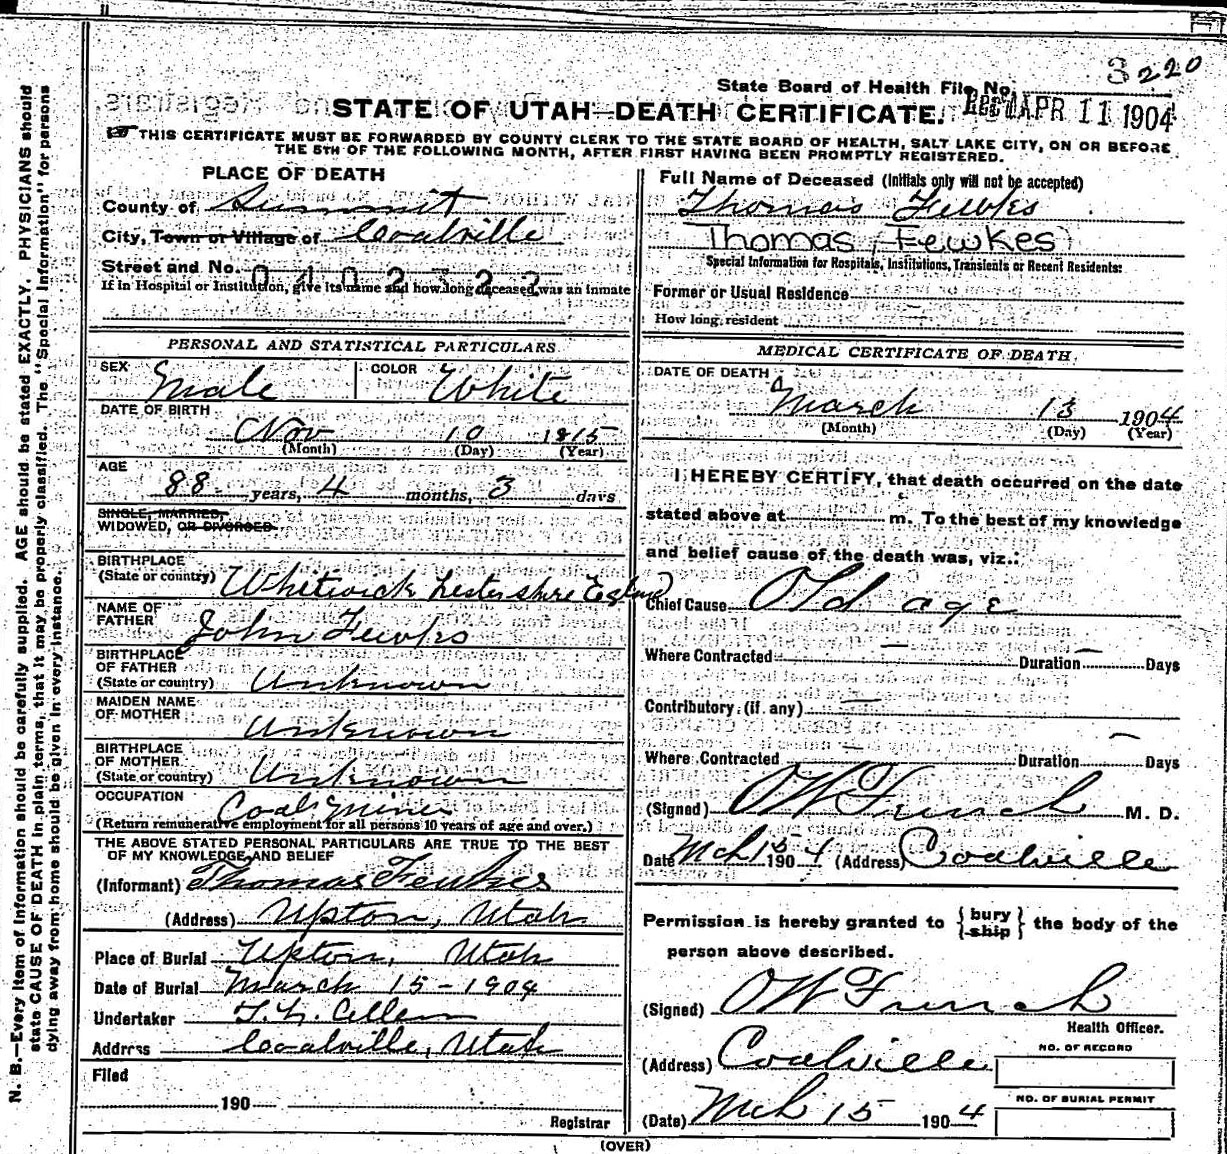 3220
State Board of Health File No.
STATE OF UTAH—DEATH CERTIFICATE.
Rec'd APR 11 1904
THIS CERTIFICATE MUST BE FORWARDED BY COUNTY CLERK TO THE STATE BOARD OF HEALTH, SALT LAKE CITY, ON OR BEFORE
THE 5TH OF THE FOLLOWING MONTH, AFTER FIRST HAVING BEEN PROMPTLY REGISTERED.
PLACE OF DEATH
County of Summit
City, Town or Village of Coalville
Street and No. 0402322
If in Hospital or Institution, give its name and how long deceased was an inmate
Full Name of Deceased (Initials only will not be accepted)
Thomas Fewks
Thomas Fewkes
Special Information for Hospitals, Institutions, Transients or Recent Residents:
Former or Usual Residence
How long resident
PERSONAL AND STATISTICAL PARTICULARS
SEX Male COLOR White
DATE OF BIRTH
Nov 10 1815
(Month) (Day) (Year)
AGE
88 years, 4 months, 3 days
SINGLE, MARRIED,
WIDOWED, OR DIVORCED
BIRTHPLACE
(State or country) Whitwick Lestershire England
NAME OF
FATHER John Fewks
BIRTHPLACE
OF FATHER
(State or country) Unknown
MAIDEN NAME
OF MOTHER Unknown
BIRTHPLACE
OF MOTHER
(State or country) Unknown
OCCUPATION Coal Miner
(Return remunerative employment for all persons 10 years of age and over.)
THE ABOVE STATED PERSONAL PARTICULARS ARE TRUE TO THE BEST
OF MY KNOWLEDGE AND BELIEF
(Informant) Thomas Fewkes
(Address) Upton, Utah
Place of Burial Upton, Utah
Date of Burial March 15-1904
Undertaker
Address Coalville, Utah
Filed
190
Registrar
MEDICAL CERTIFICATE OF DEATH.
DATE OF DEATH
March 13 1904
(Month) (Day) (Year)
I HEREBY CERTIFY, that death occurred on the date
stated above at m. To the best of my knowledge
and belief cause of the death was, viz.:
Chief Cause Old age
Where Contracted — Duration — Days
Contributory (if any) —
Where Contracted — Duration — Days
(Signed) OW French M. D.
Date Mch 15 1904 (Address) Coalville
Permission is hereby granted to {bury
ship} the body of the
person above described.
(Signed) OW French
Health Officer.
(Address) Coalville
NO. OF RECORD
NO. OF BURIAL PERMIT
(Date) Mch 15 1904
(OVER)
N. B.—Every item of information should be carefully supplied. AGE should be stated EXACTLY. PHYSICIANS should
state CAUSE OF DEATH in plain terms, that it may be properly classified. The "Special Information" for persons
dying away from home should be given in every instance.